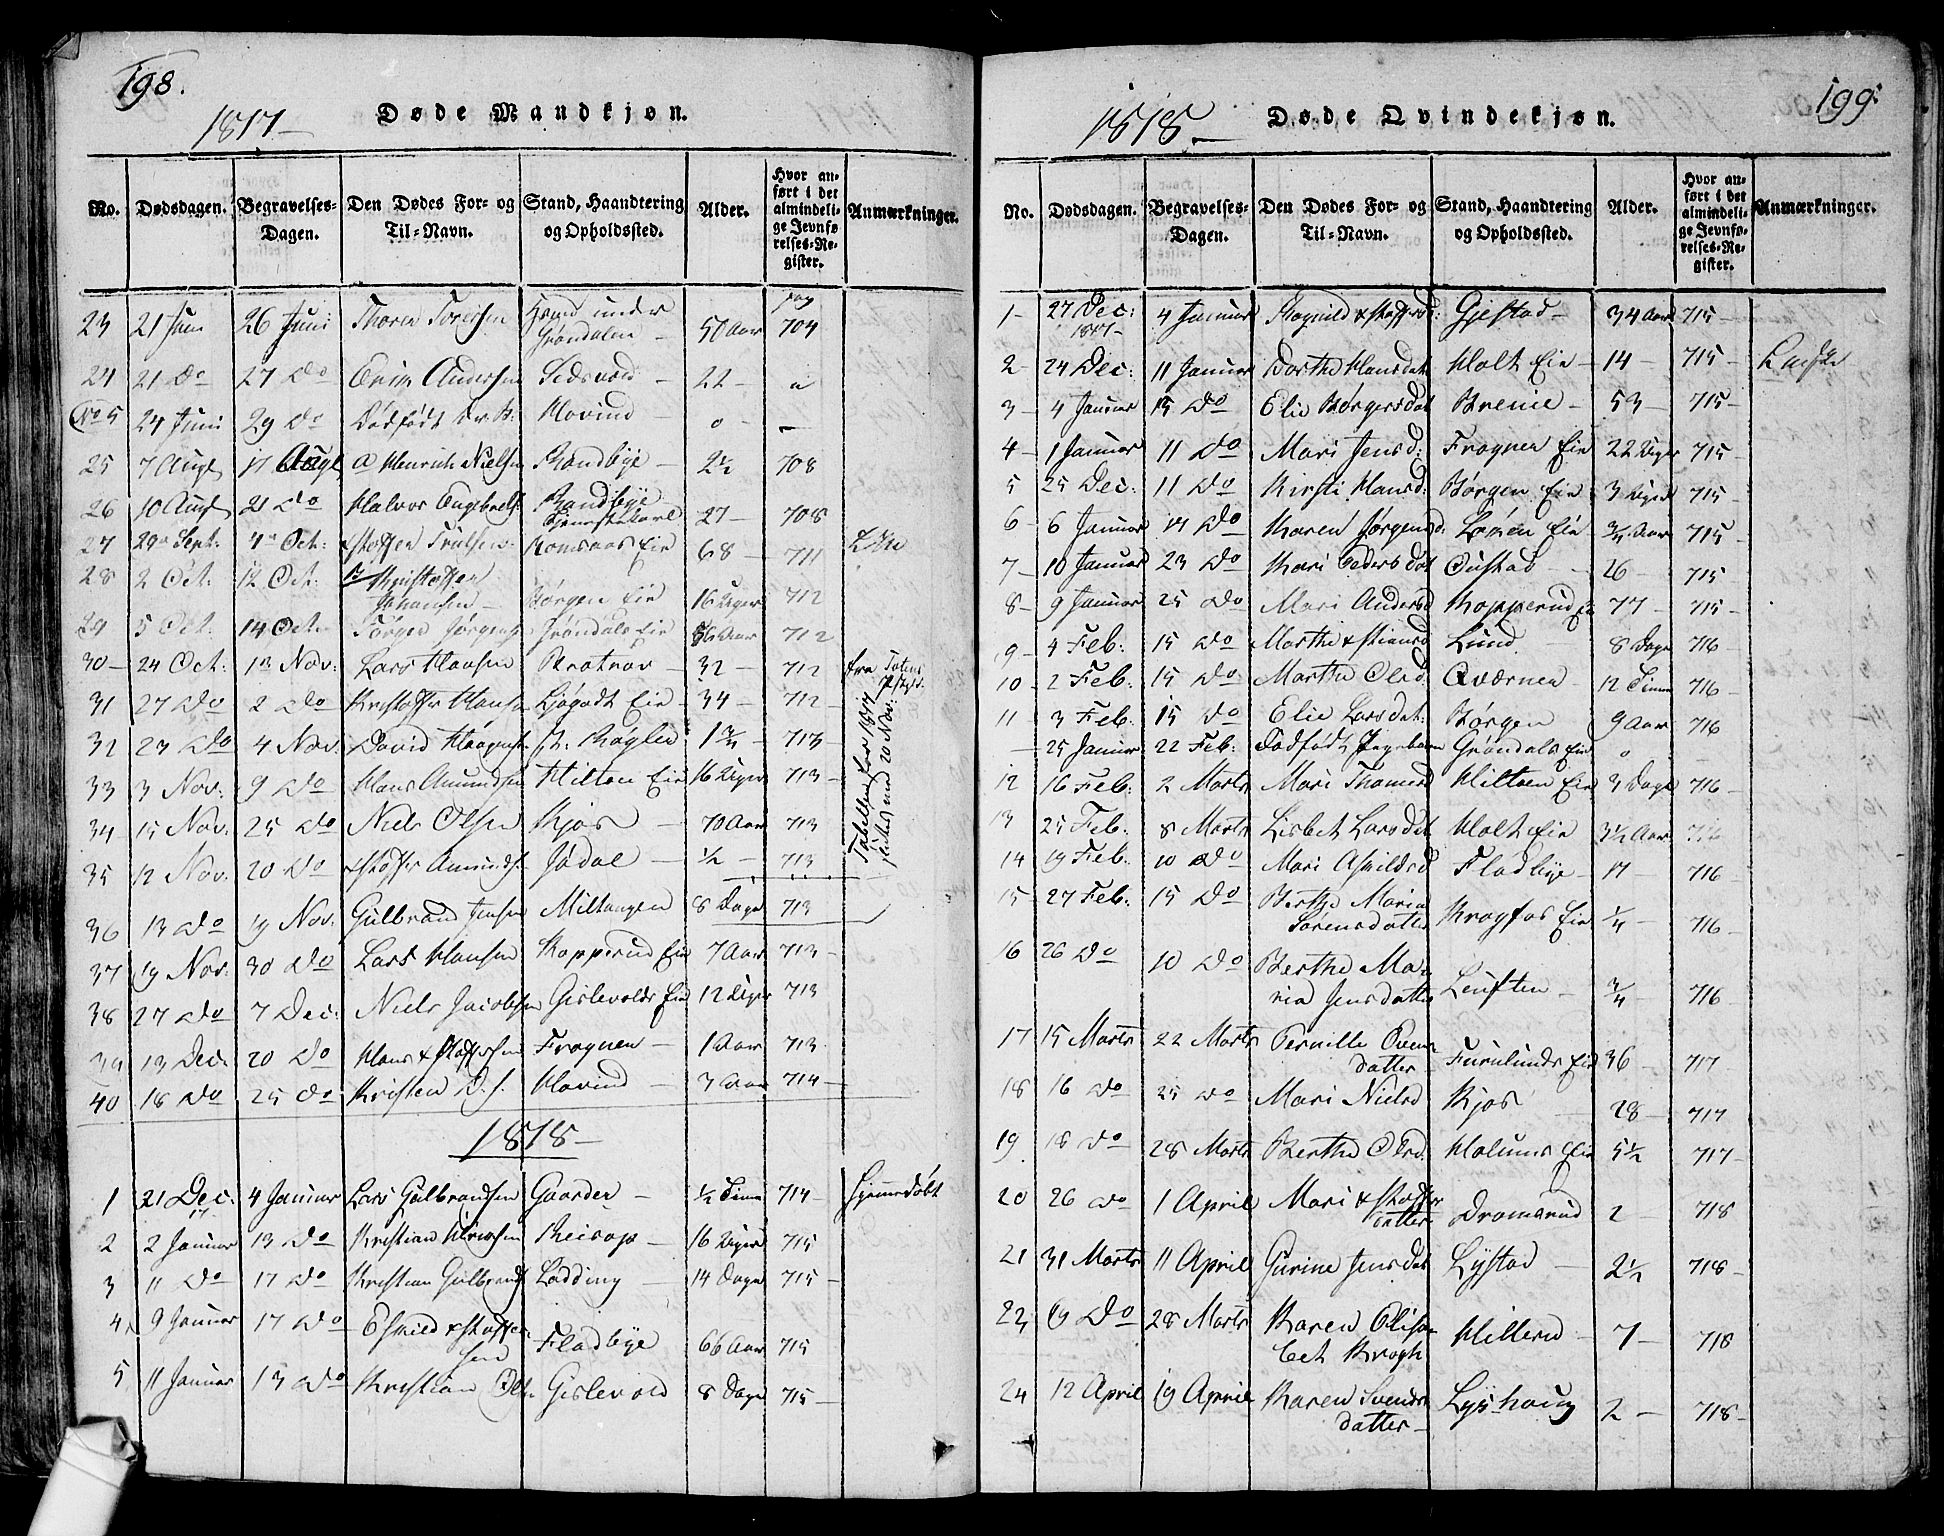 198.
1817 Døde Mandkjøn.
No. Dødsdagen. Begravelses-Dagen. Den Dødes For- og Til-Navn. Stand, Haandtering og Opholdssted. Alder. Hvor anført i det almindelige Jevnførelses-Register. Anmærkninger.
23 21 Juni 26 Juni Thoren Grøndalen 50 Aar pag 704
24 21 Do 27 Do Andersen 22 –
No 5 24 Juni 29 Do Dødfødt Hovind – 0 –
25 7 Augt 17 Augt Henrich Nielsen Randbye – 2½ 708
26 10 Augt 21 Do Halvor Engebrets. Randbye Tjenestekarl 27 – 708
27 29 Sept: 4 Oct: Støffer Trulsen Romsaas Eie 68 – 711
28 2 Oct: 12 Oct: Christoffer Johansen – Børgen Eie 16 Uger 712
29 5 Oct: 14 Oct. Jørgen Jørgens. Grøndals Eie Aar 712
30 – 24 Oct: Nov: Lars Hansen 32 – 712 fra Toten
31 27 Do 2 Do Kristoffer Hansen Ljøgodt Eie 34 – 712
32 23 Do 4 Nov. David 1¾ – 713
33 3 Nov: 9 Do Hans Amundsen Hilton Eie 16 Uger 713 –
34 15 Nov: 25 Do Niels Olsen Kjos – 70 Aar 713
35 12 Nov: 20 Do Støffer Amunds. Jødal – ½ – 713
Tabellen for 1817 20 Nov:
36 13 Do 19 Nov. Gulbrand Jensen Miltangen 8 Dage 713
37 19 Nov: 30 Do Lars Hansen Kopperud Eie 7 Aar 713 –
38 27 Do 7 Dec: Niels Jacobsen Gislevolds Eie 12 Uger 713
39 13 Dec: 20 Do Hans Støffersen Frognen – 1 Aar 713
40 18 Do 25 Do Kristen Hovind – 3 Aar 714 –
1818 –
1 21 Dec: 17 4 Januar Lars Gulbrandsen Gaarder – ½ Time 714 – hjemmedøbt
2 2 Januar 13 Do Kristian Reisop – 16 Uger 715
3 11 Do 17 Do Kristian Gulbrands. Lødding – 14 Dage 715 –
4 9 Januar 17 Do Eskild Støffersen Fladbye 66 Aar 715
5 11 Januar 13 Do Kristian Ols. Gislevold 8 Dage 715 –
199.
1818 – Døde Qvindekjøn.
No. Dødsdagen. Begravelses-Dagen. Den Dødes For- og Til-Navn. Stand, Haandtering og Opholdssted. Alder. Hvor anført i det almindelige Jevnførelses-Register. Anmærkninger.
1 – 27 Dec: 1817 – 4 Januar Ragnild Støffersd: Gjestad – 34 Aar 715 –
2 – 24 Dec: 11 Januar Dorthe Hansdat. Holt Eie – 14 – 715 –
3 – 4 Januar 15 Do Elie Børgersdat Brenie – 53 – 715 –
4 – 1 Januar 11 Do Mari Jensd: Frogner Eie 22 Uger 715 –
5 25 Dec: 11 Do Kirsti Hansd: Børgen Eie 3 Uger 715
6 – 6 Januar 17 Do Karen Jørgensd: Løken Eie ¾ Aar 715
7 – 10 Januar 23 Do Kari Pedersdat 26 – 715
8 – 9 Januar 25 Do Mari Andersd Kopperud Eie 77 – 715 –
9 – 4 Feb: 15 Do Marthe Stiansd Lund 8 Dage 716 –
10 – 2 Feb: 15 Do Marthe Olsd. Qværnen – 12 Timer 716 –
11 – 3 Feb: 15 Do Elie Larsdat. Børgen 9 Aar 716
– 25 Januar 22 Feb: Dødfødt Pigebarn Grøndals Eie 0 –
12 16 Feb: 2 Marts Mari Thomesd Miltoen Eie 3 Dage 716 –
13 25 Feb: 8 Marts Lisbet Larsdat. Holt Eie 3½ Aar 716
14 19 Feb. 10 Do Mari Askildsd Fladbye – 17 – 716
15 27 Feb: 15 Do Berthe Maria Sørensdatter Krogfos Eie ¼ 716 –
16 26 Do 10 Do Berthe Maria Jensdatter – ¾ – 716
17 15 Marts 22 Marts Pernille Evensdatter Furulunds Eie 36 – 717
18 16 Do 25 Do Mari Nielsd Kjos 28 – 717
19 18 Do 28 Marts Berthe Olsd. Holums Eie 5½ 717 –
20 26 Do 1 April Mari Støffersdatter Dromsrud 2 – 718
21 31 Marts 11 April Gurine Jensdat Lystad – 2½ 718 –
22 19 Do 28 Marts Karen Elisabet Krogh Hillerd 7 – 718
24 12 April 19 April Karen Svendsdatter – Lyshoug 2 – 718 –